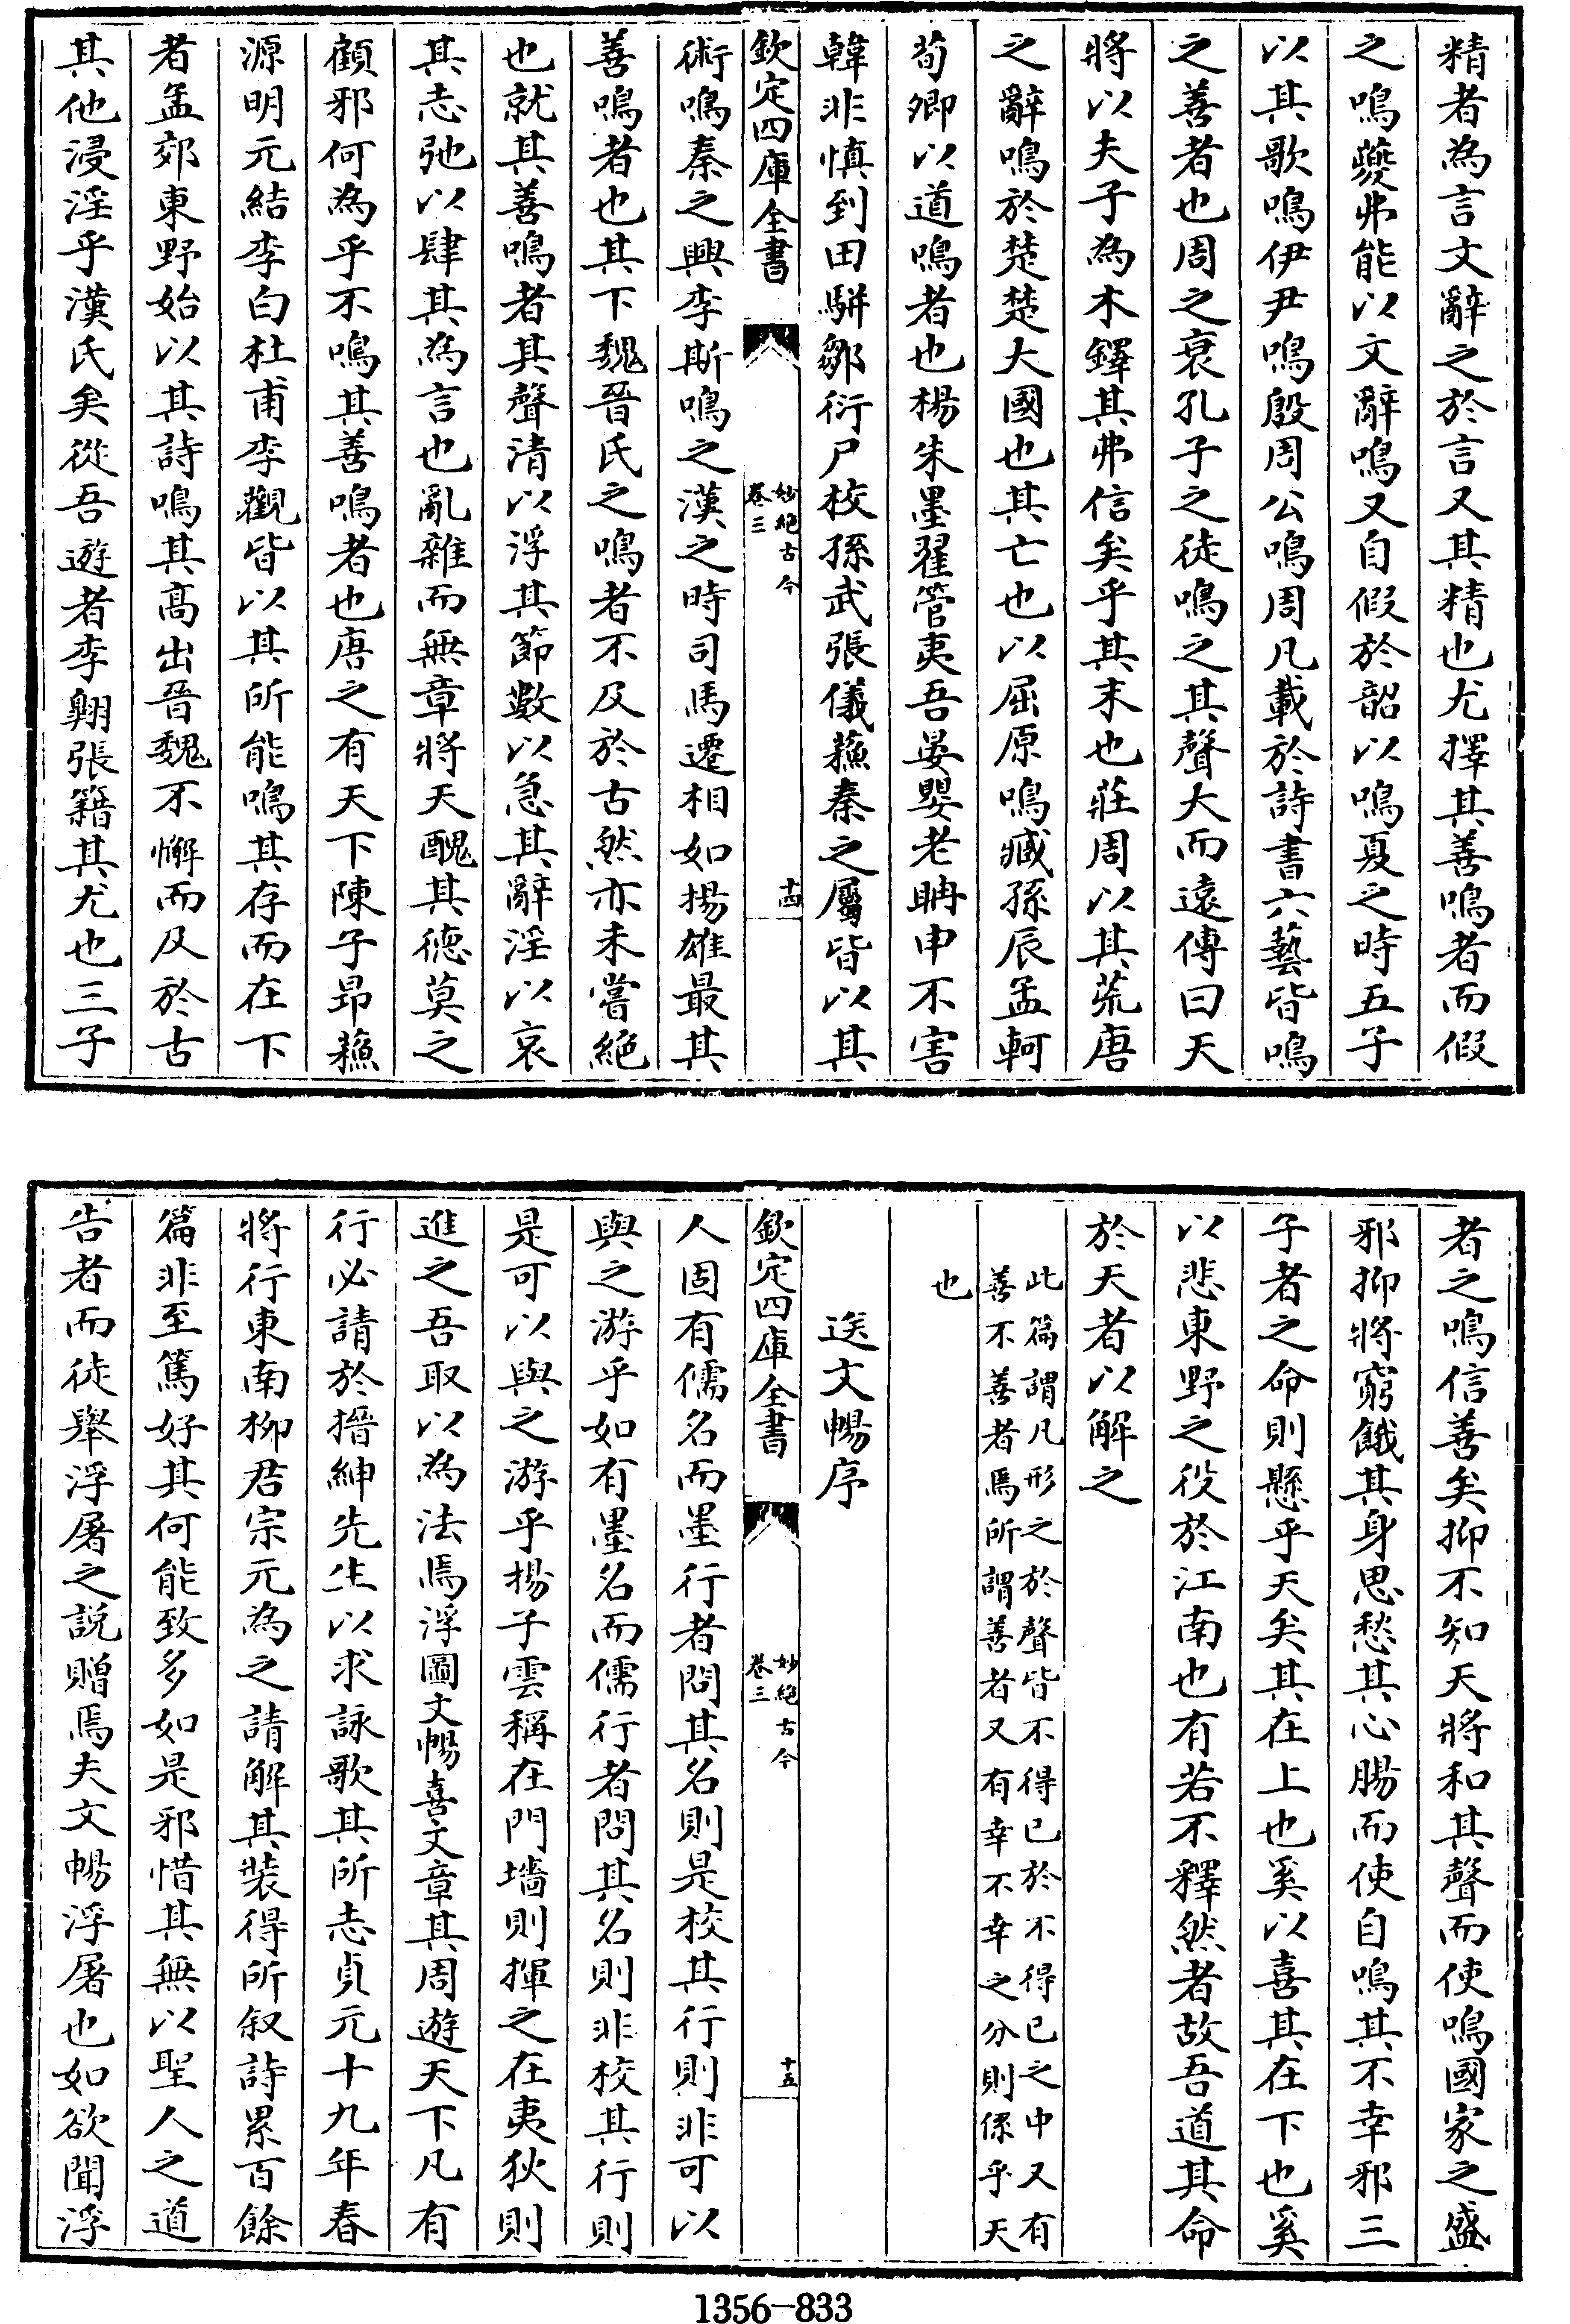 精者為言文辭之於言又其精也尤擇其善鳴者而假
之鳴夔弗能以文辭鳴又自假於韶以鳴夏之時五子
以其歌鳴伊尹鳴殷周公鳴周凡載於詩書六藝皆鳴
之善者也周之衰孔子之徒鳴之其聲大而遠傳曰天
將以夫子為木鐸其弗信矣乎其末也莊周以其荒唐
之辭鳴於楚楚大國也其亡也以屈原鳴臧孫辰孟軻
荀卿以道鳴者也楊朱墨翟管夷吾晏嬰老聃申不害
韓非慎到田駢鄒衍尸校孫武張儀蘓秦之屬皆以其
欽定四庫全書
妙絕古今
卷三
十四
術鳴秦之興李斯鳴之漢之時司馬遷相如揚雄最其
善鳴者也其下魏晉氏之鳴者不及於古然亦未嘗絕
也就其善鳴者其聲清以浮其節數以急其辭淫以哀
其志弛以肆其為言也亂雜而無章將天醜其德莫之
顧邪何為乎不鳴其善鳴者也唐之有天下陳子昂蘓
源明元結李白杜甫李觀皆以其所能鳴其存而在下
者孟郊東野始以其詩鳴其高出晉魏不懈而及於古
其他浸淫乎漢氏矣從吾遊者李翺張籍其尤也三子
者之鳴信善矣抑不知天將和其聲而使鳴國家之盛
邪抑將窮餓其身思愁其心腸而使自鳴其不幸邪三
子者之命則懸乎天矣其在上也奚以喜其在下也奚
以悲東野之役於江南也有若不釋然者故吾道其命
於天者以解之
此篇謂凡形之於聲皆不得已於不得已之中又有
善不善者焉所謂善者又有幸不幸之分則係乎天
也
送文暢序
欽定四庫全書
妙絕古今
卷三
十五
人固有儒名而墨行者問其名則是校其行則非可以
與之游乎如有墨名而儒行者問其名則非校其行則
是可以與之游乎揚子雲稱在門墻則揮之在夷狄則
進之吾取以為法焉浮圖文暢喜文章其周遊天下凡有
行必請於搢紳先生以求詠歌其所志貞元十九年春
將行東南柳君宗元為之請解其裝得所叙詩累百餘
篇非至篤好其何能致多如是邪惜其無以聖人之道
告者而徒舉浮屠之說贈焉夫文暢浮屠也如欲聞浮
1356-833